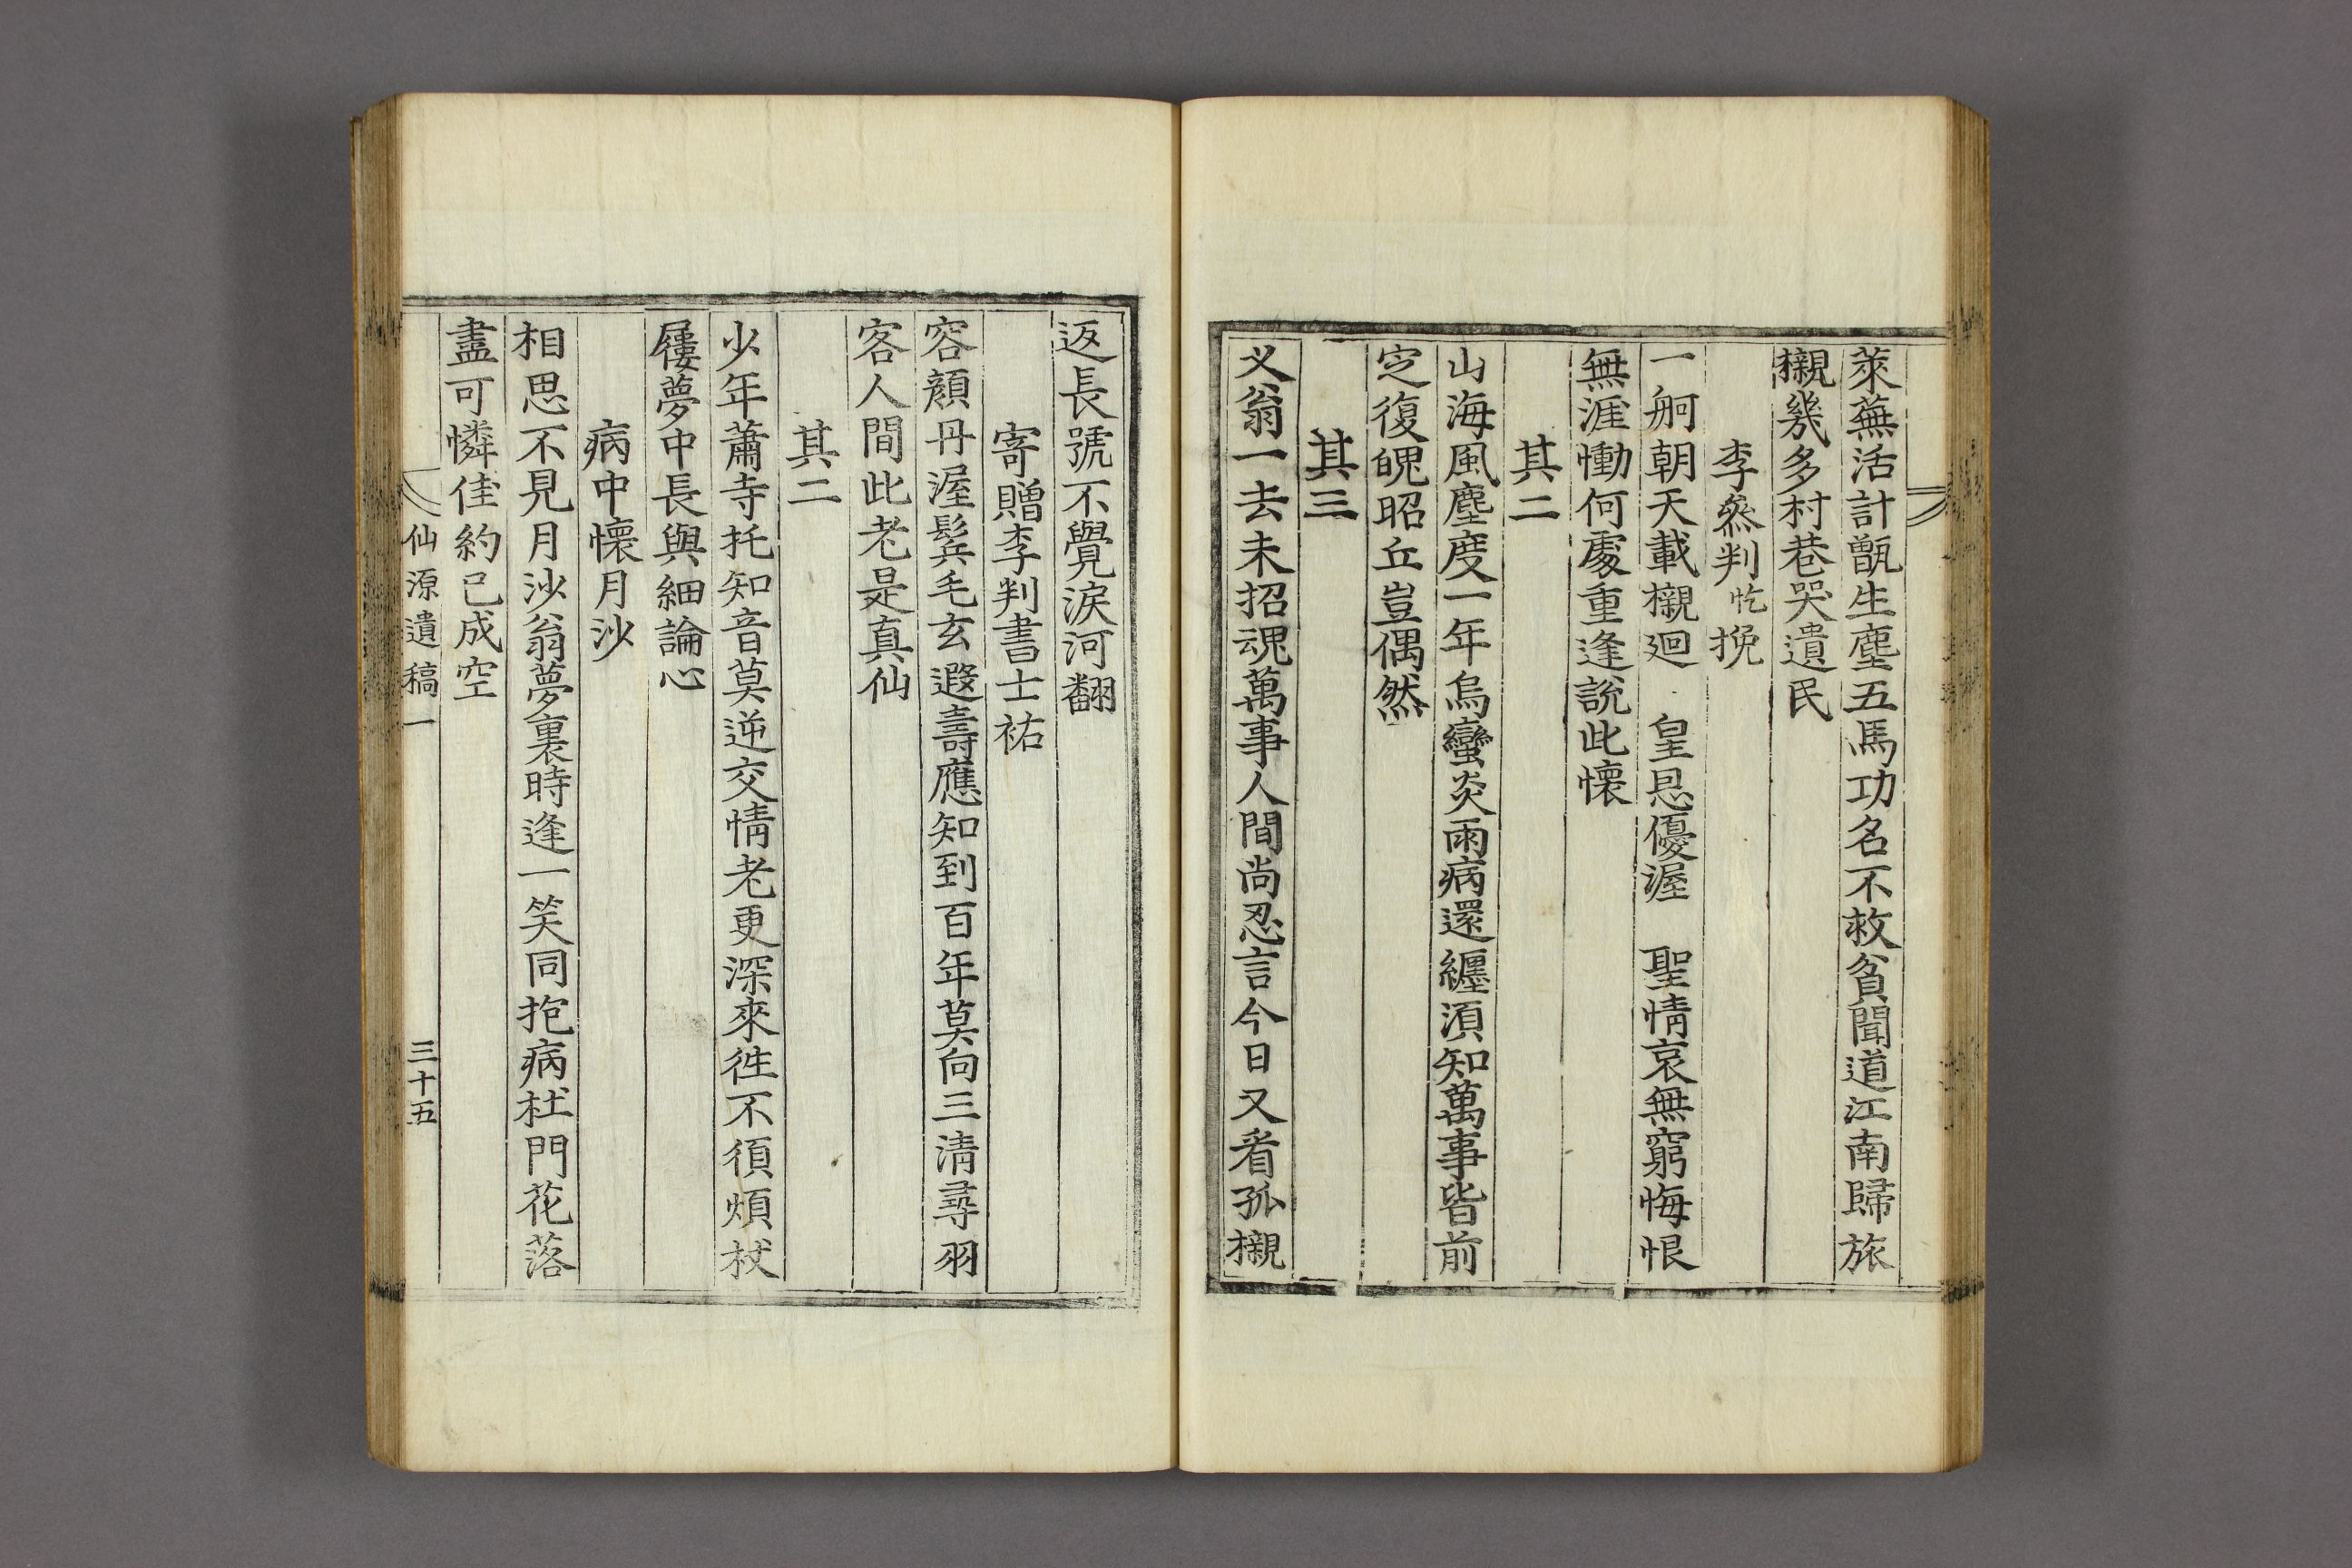 萊蕪活計甑生塵五馬功名不救貧聞道江南歸旅
櫬幾多村巷哭遺民
李叅判忔挽
一舸朝天載櫬廻 皇恩優渥 聖情哀無窮悔恨
無涯慟何處重逢說此懷
其二
山海風塵度一年烏蠻炎雨病還纏湏知萬事皆前
定復魄昭丘豈偶然
其三
义翁一去未招魂萬事人間尙忍言今日又看孤櫬
返長號不覺淚河翻
寄贈李判書士祐
容顔丹渥鬂毛玄遐壽應知到百年莫向三淸尋羽
客人間此老是真仙
其二
少年蕭寺托知音莫逆交情老更深來徃不湏煩杖
屨夢中長與細論心
病中懷月沙
相思不見月沙翁夢裏時逢一笑同抱病杜門花落
盡可憐佳約已成空
仙源遺稿一 三十五